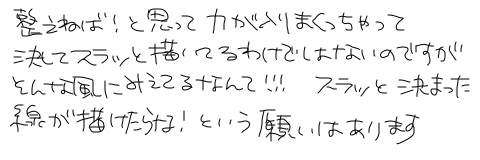 整えねば!と思って力が入りまくっちゃって
決してスラッと描いてるわけではないのですが
そんな風にみえてるなんて!!! スラッと決まった
線が描けたらな!という願いはあります